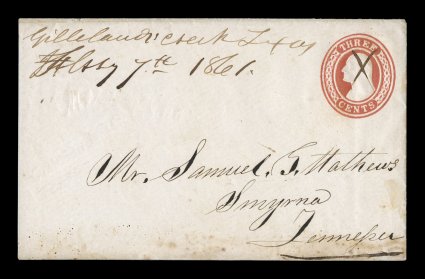 Gilleland Creek Texas
7th 1861.
THREE
CENTS
Mr. Samuel G. Mathews
Smyrna
Tennessee